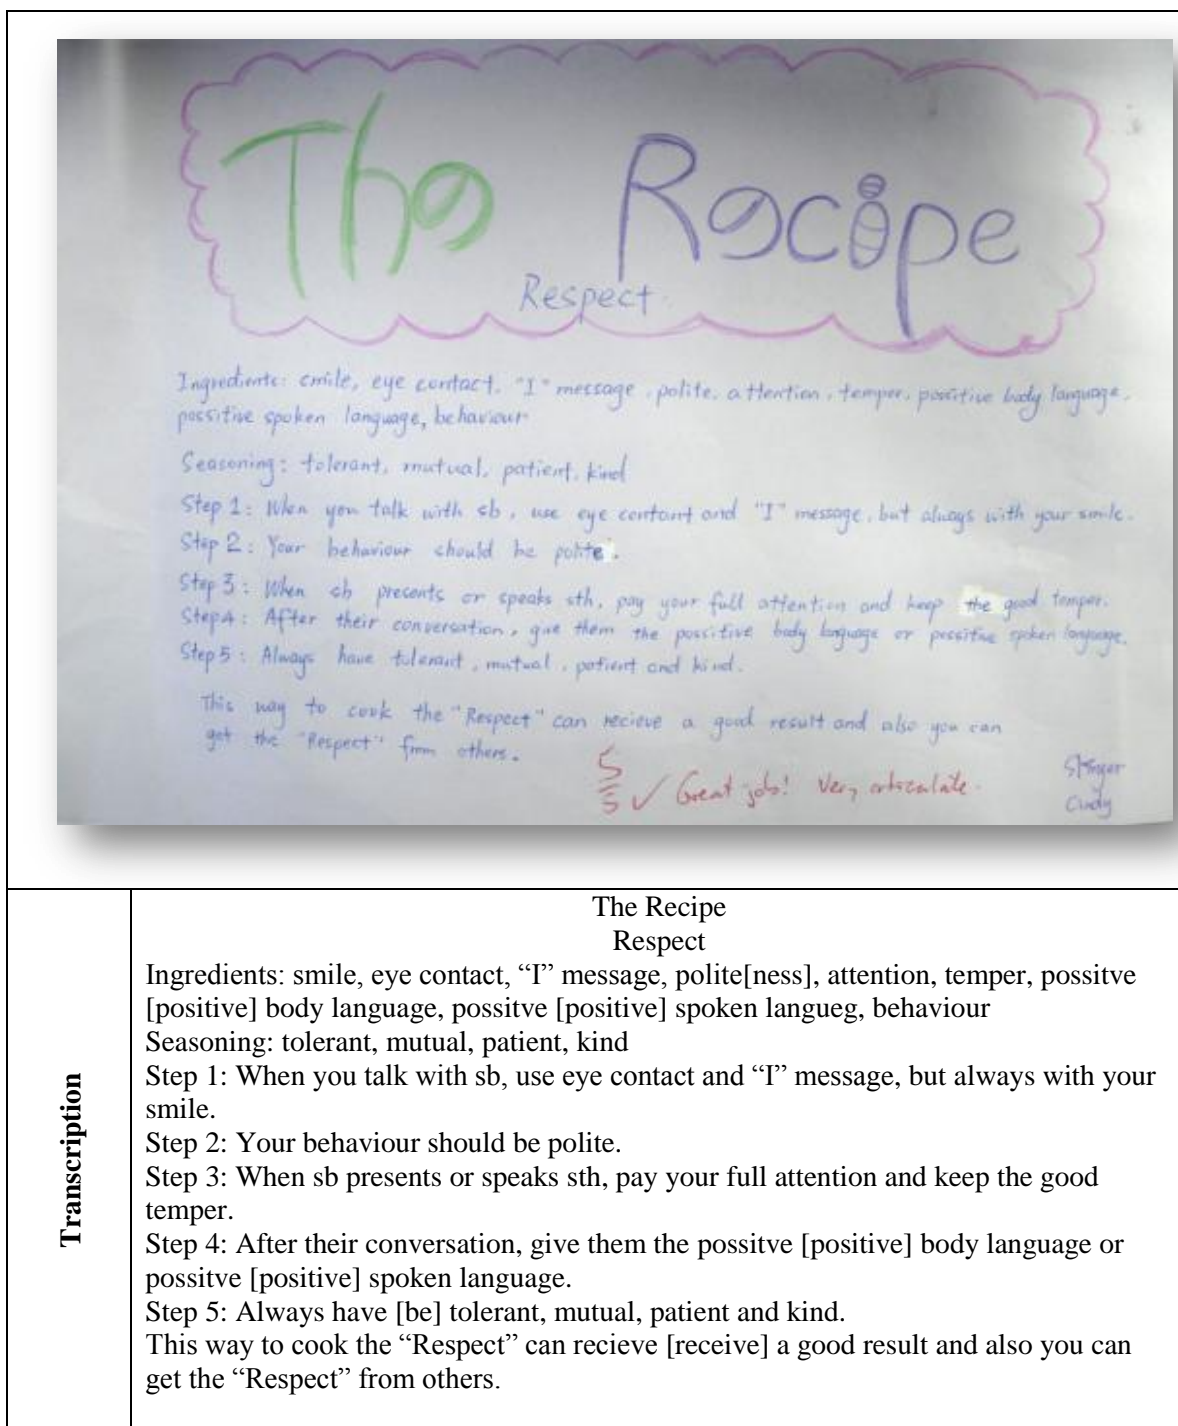 The Recipe
Respect
Ingredients: smile, eye contact, "I" message, polite, attention, temper, possitive body language,
possitive spoken language, behaviour
Seasoning: tolerant, mutual, patient, kind
Step 1: When you talk with sb, use eye contact and "I" message, but always with your smile.
Step 2: Your behaviour should be polite.
Step 3: When sb presents or speaks sth, pay your full attention and keep the good temper.
Step 4: After their conversation, give them the possitive body language or possitive spoken language.
Step 5: Always have tolerant, mutual, patient and kind.
This way to cook the "Respect" can recieve a good result and also you can
get the "Respect" from others.
5
5 ✓ Great job! Very articulate.
Cindy
Transcription
The Recipe
Respect
Ingredients: smile, eye contact, “I” message, polite[ness], attention, temper, possitve
[positive] body language, possitve [positive] spoken langueg, behaviour
Seasoning: tolerant, mutual, patient, kind
Step 1: When you talk with sb, use eye contact and “I” message, but always with your
smile.
Step 2: Your behaviour should be polite.
Step 3: When sb presents or speaks sth, pay your full attention and keep the good
temper.
Step 4: After their conversation, give them the possitve [positive] body language or
possitve [positive] spoken language.
Step 5: Always have [be] tolerant, mutual, patient and kind.
This way to cook the “Respect” can recieve [receive] a good result and also you can
get the “Respect” from others.